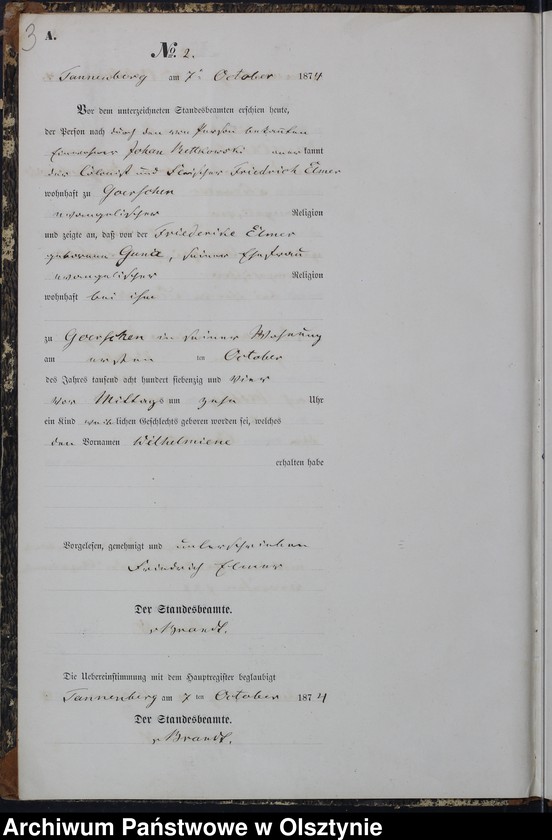 3
A.
No. 2.
Tannenberg am 7ten October 1874
Vor dem unterzeichneten Standesbeamten erschien heute,
der Person nach durch den von Person bekannten
Einwohner Johan anerkannt
der Colonist und Friedrich Elmer
wohnhaft zu Goerschen
evangelischer Religion
und zeigte an, daß von der Friederike Elmer
geborenen, seiner Ehefrau
evangelischer Religion
wohnhaft bei ihm
zu Goerschen in seiner Wohnung
am ersten ten October
des Jahres tausend acht hundert siebenzig und vier
Vor Mittags um zehn Uhr
ein Kind weiblichen Geschlechts geboren worden sei, welches
den Vornamen Wilhelmiene
erhalten habe
Vorgelesen, genehmigt und unterschrieben
Friedrich Elmer
Der Standesbeamte.
vBrandt.
Die Uebereinstimmung mit dem Hauptregister beglaubigt
Tannenberg am 7 ten October 1874
Der Standesbeamte.
vBrandt.
Archiwum Państwowe w Olsztynie